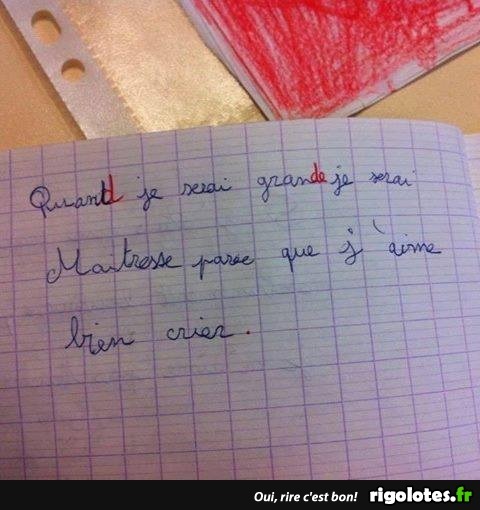 Quand je serai grande je serai
Maitresse parce que j'aime
bien crier.
Oui, rire c'est bon! rigolotes.fr